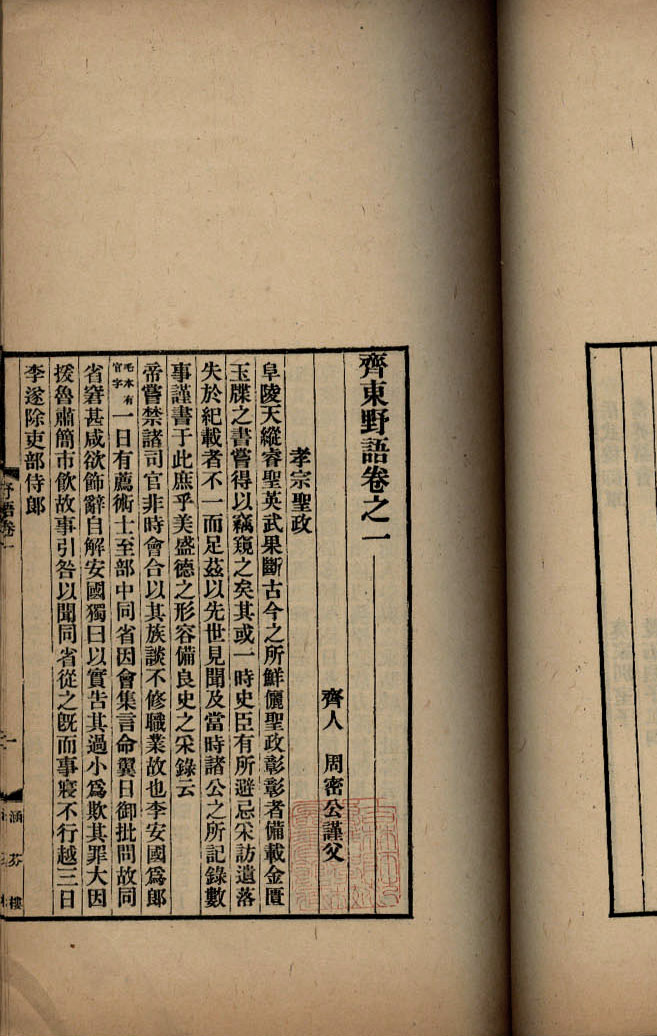 齊東野語卷之一
齊人　周密公謹父
孝宗聖政
阜陵天縱睿聖英武果斷古今之所鮮儷聖政彰彰者備載金匱
玉牒之書嘗得以竊窺之矣其或一時史臣有所避忌采訪遺落
失於紀載者不一而足茲以先世見聞及當時諸公之所記錄數
事謹書于此庶乎美盛德之形容備良史之采錄云
帝嘗禁諸司官非時會合以其族談不修職業故也李安國爲郎
毛本有官字一日有薦術士至部中同省因會集言命翼日御批問故同
省窘甚咸欲飾辭自解安國獨曰以實告其過小爲欺其罪大因
援魯肅簡市飲故事引咎以聞同省從之旣而事寢不行越三日
李遂除吏部侍郎
野語卷一
一
涵芬樓